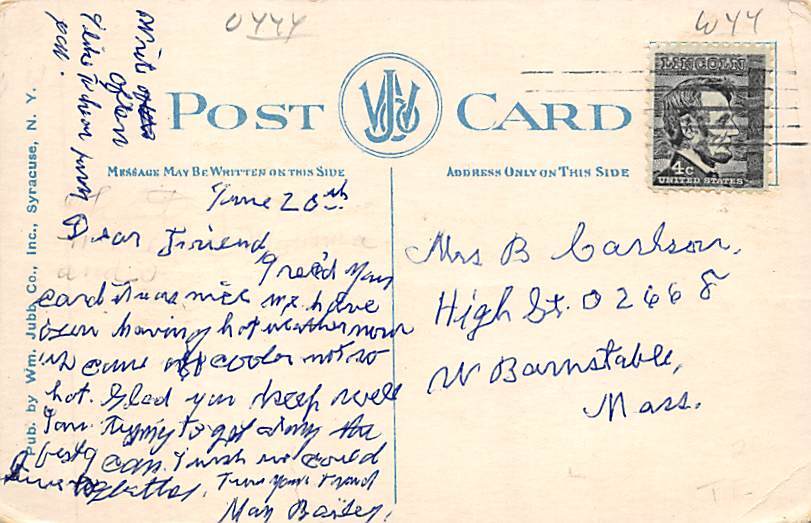 0444
W44
Write
often
I like to hear from
you.
POST CARD
WJCO
LINCOLN
4c
UNITED STATES
MESSAGE MAY BE WRITTEN ON THIS SIDE
ADDRESS ONLY ON THIS SIDE
Pub. by Wm. Jubb Co., Inc., Syracuse, N. Y.
June 20th
Dear Friend
I rec'd your
card it was nice we have
been having hot weather now
it came off cooler not so
hot. Glad you keep well
I am trying to get along the
best I can. I wish we could
better, Your Friend
May Bailey.
Mrs B Carlson,
High St. 02668
W Barnstable,
Mass.